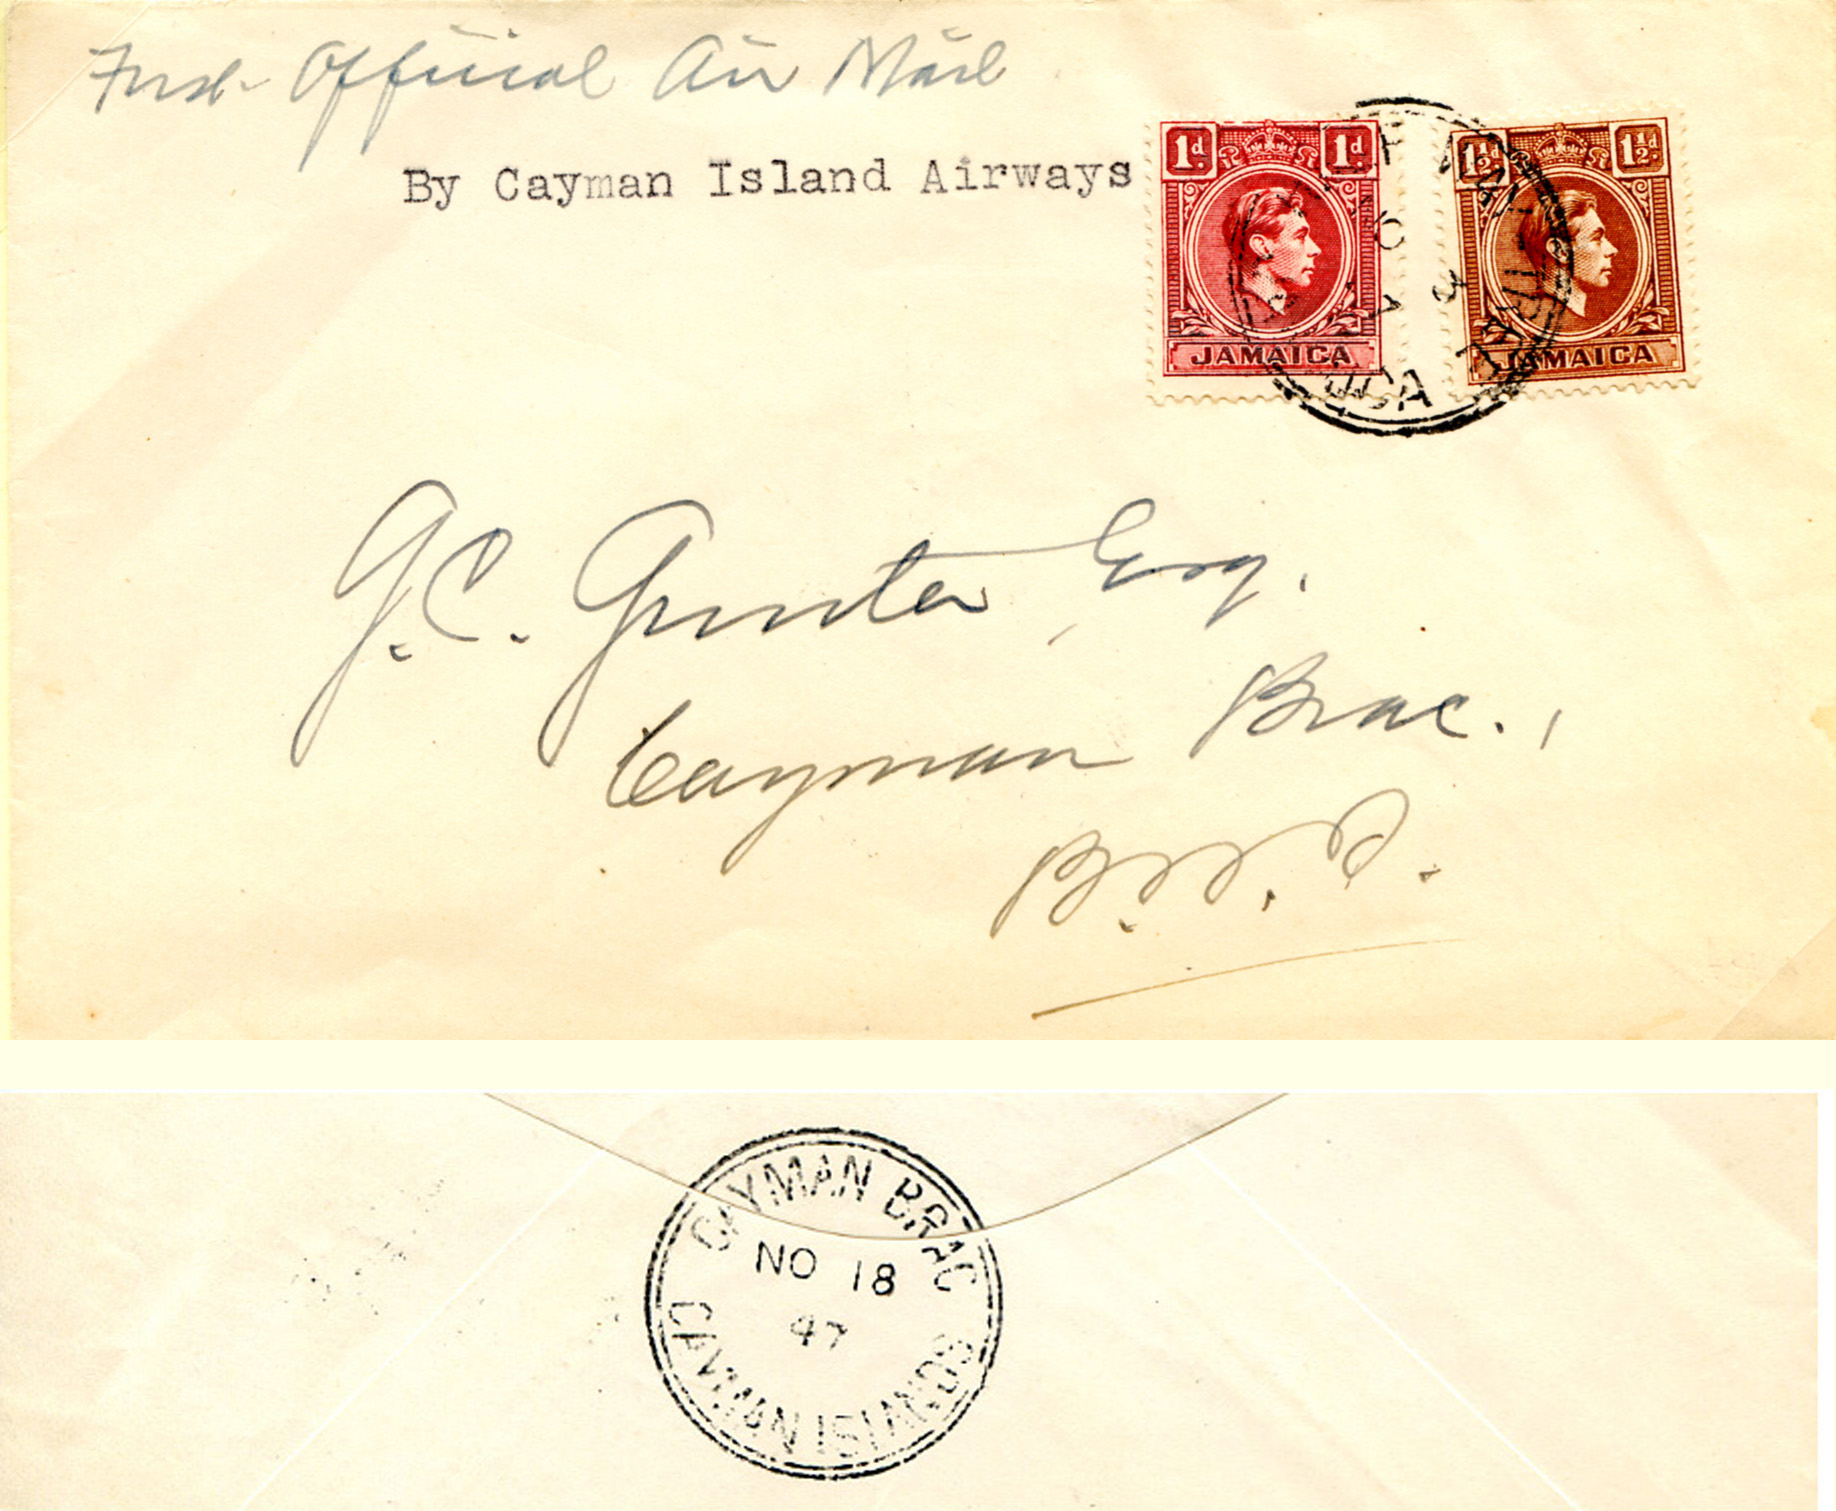 First Official Air Mail
By Cayman Island Airways
1d. 1d.
JAMAICA
1½d. 1½d.
JAMAICA
G.C. Gunter, Esq.
Cayman Brac.,
B.W.I.
CAYMAN BRAC
NO 18
47
CAYMAN ISLANDS